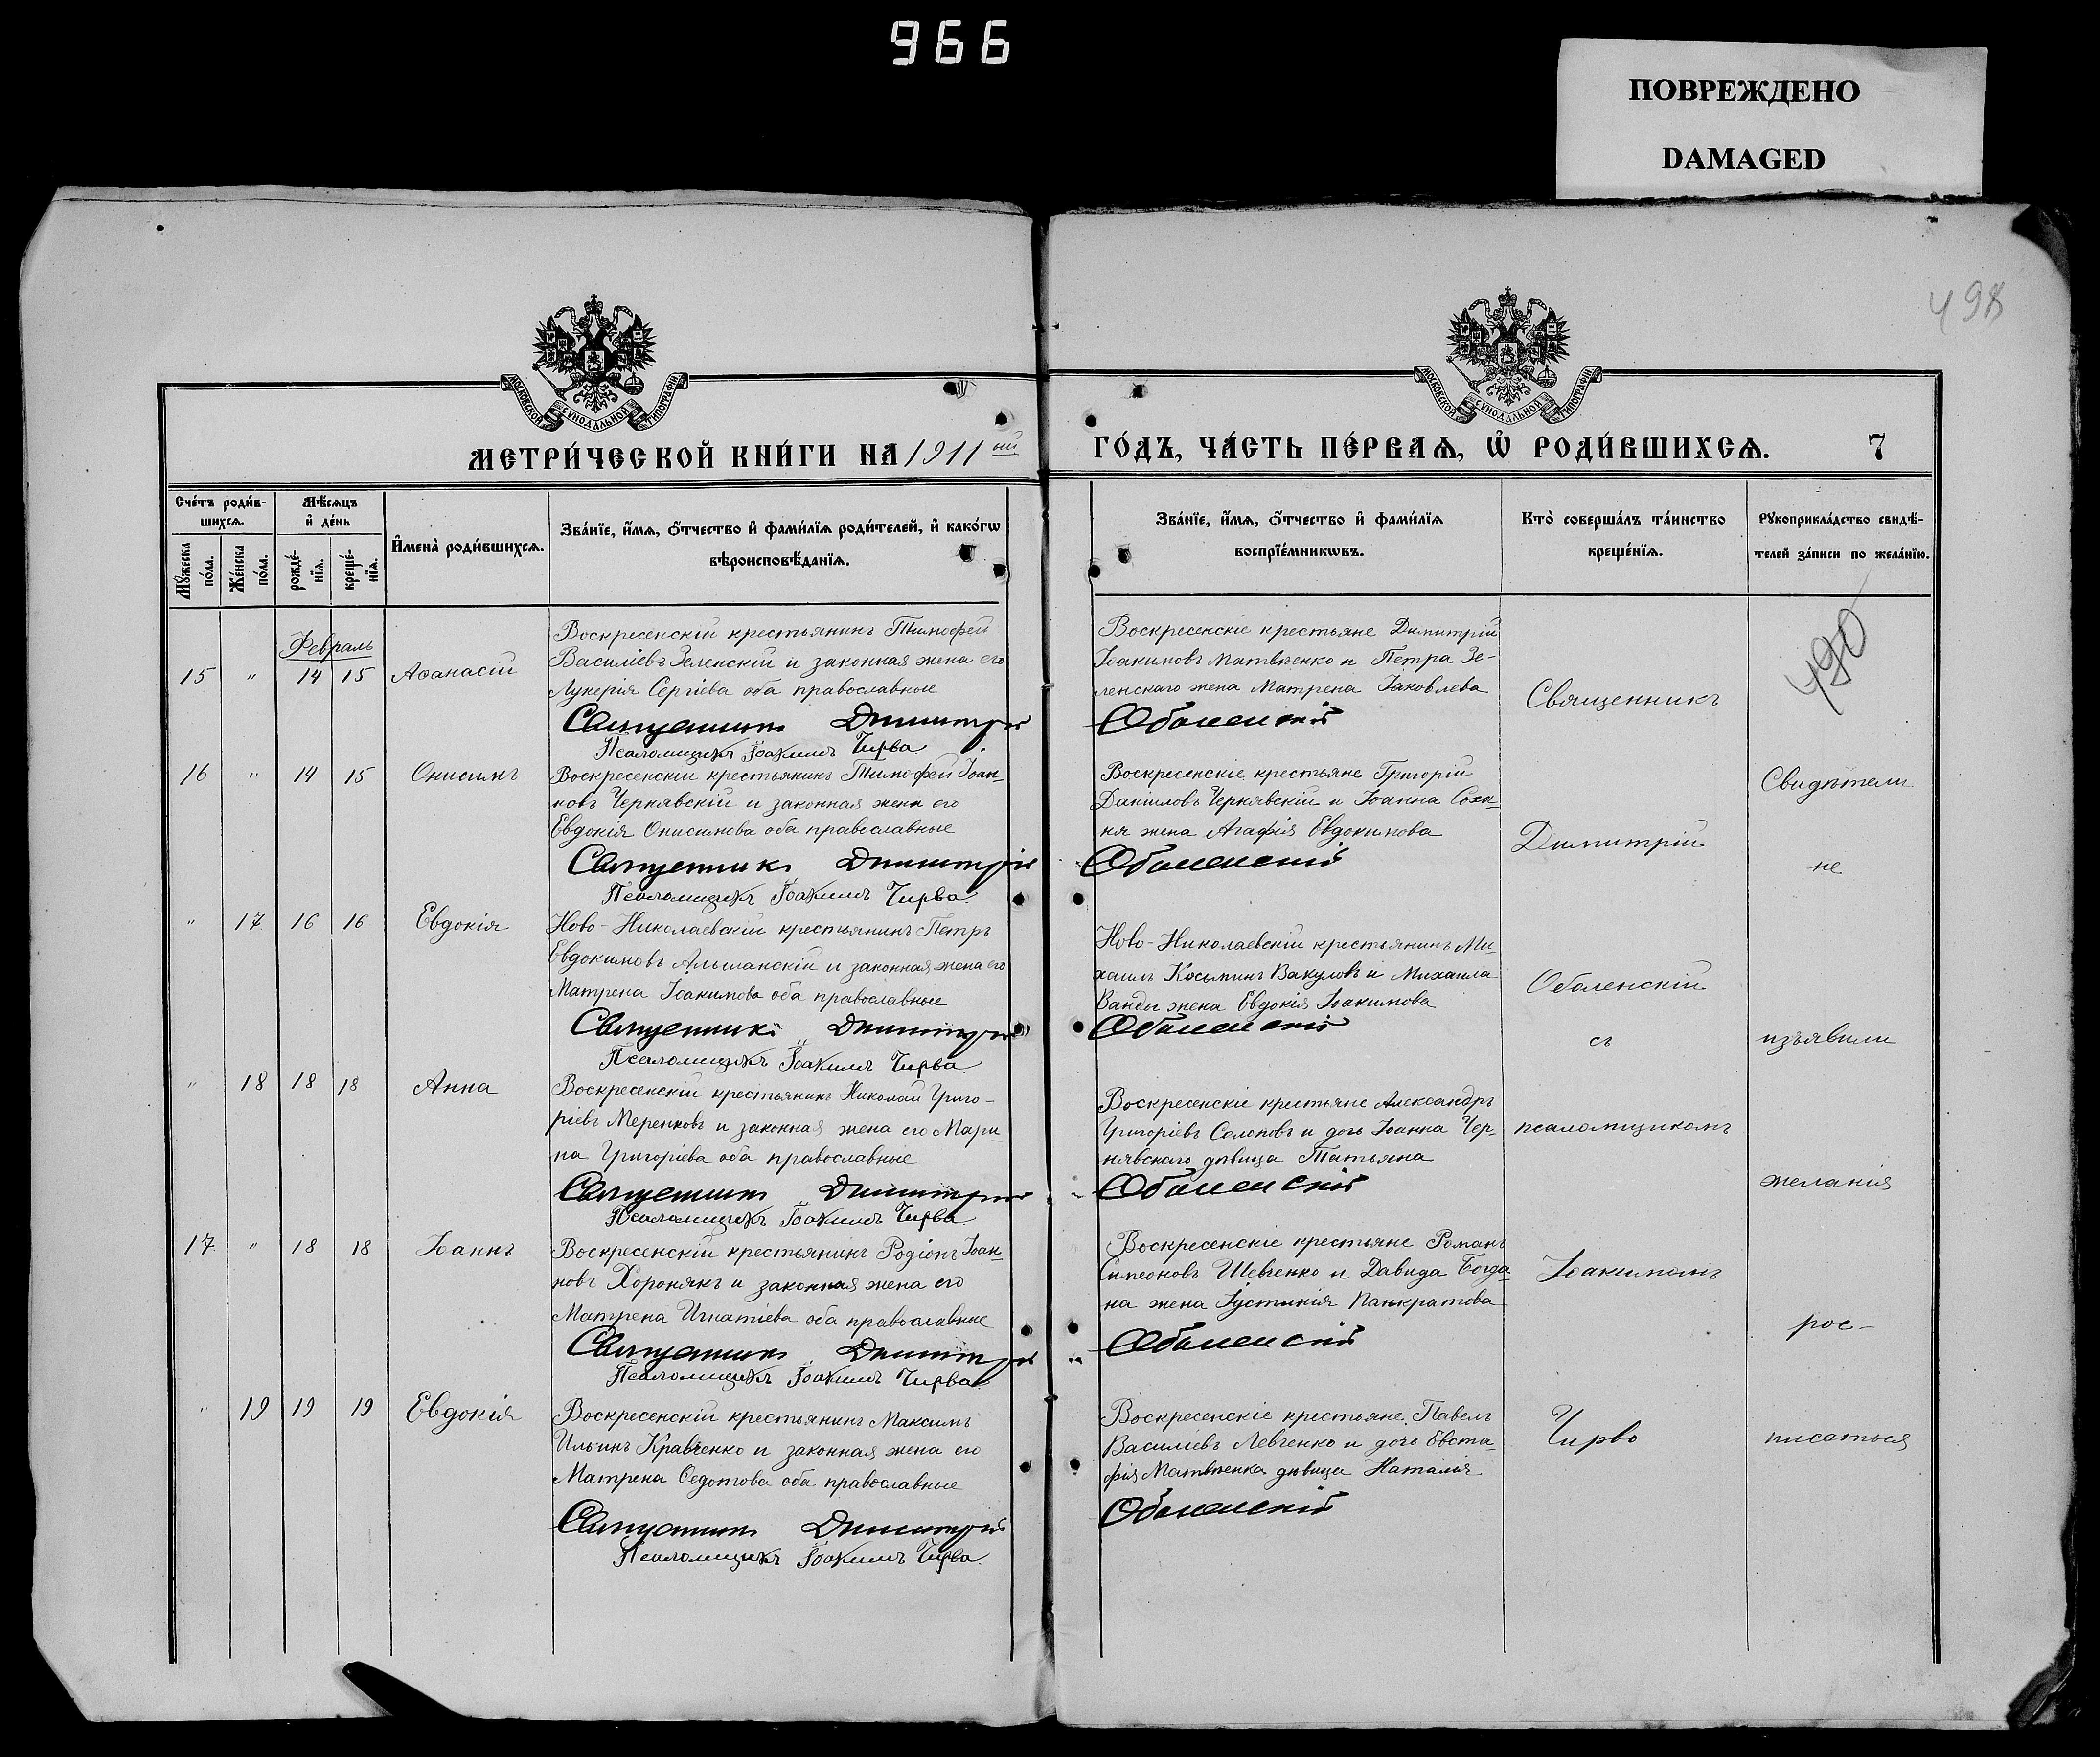 966
ПОВРЕЖДЕНО
DAMAGED
498
МОСКОВСКОЙ СѴНОДАЛЬНОЙ ТИПОГРАФІИ
МОСКОВСКОЙ СѴНОДАЛЬНОЙ ТИПОГРАФІИ
МЕТРИ́ЧЕСКОЙ КНИ́ГИ НА 1911 ый
ГО́ДЪ, ЧА́СТЬ ПЕ́РВАѦ, Ѡ҆ РОДИ́ВШИХСѦ. 7
Сче́тъ роди́в-
шихсѧ.
Мѣ́сѧцъ
и҆ де́нь
Мꙋ́жеска
по́ла.
Же́нска
по́ла.
рожде́-
нїѧ.
креще́-
нїѧ.
И҆мена̀ роди́вшихсѧ.
Зва́нїе, и҆́мѧ, ѻ҆́тчество и҆ фами́лїѧ роди́телей, и҆ како́гѡ
вѣроисповѣ́данїѧ.
Зва́нїе, и҆́мѧ, ѻ҆́тчество и҆ фами́лїѧ
воспрїе́мникѡвъ.
Кто̀ соверша́лъ та́инство
креще́нїѧ.
Рꙋкоприкла́дство свидѣ́-
телей за́писи по жела́нїю.
Февраль
15 " 14 15 Аѳанасій
Воскресенскій крестьянинъ Тимофей
Василіевъ Зеленскій и законная жена его
Лукерія Сергіева оба православные
Священникъ Димитрій
Псаломщикъ Іоакимъ Чирва.
Воскресенскіе крестьяне Димитрій
Іоакимовъ Матвѣенко и Петра Зе-
ленскаго жена Матрена Іаковлева
Оболенскій
16 " 14 15 Онисимъ
Воскресенскій крестьянинъ Тимофей Іоан-
новъ Чернявскій и законная жена его
Евдокія Онисимова оба православные
Священникъ Димитрій
Псаломщикъ Іоакимъ Чирва.
Воскресенскіе крестьяне Григорій
Даніиловъ Чернявскій и Іоанна Сохи-
ня жена Агафія Евдокимова
Оболенскій
" 17 16 16 Евдокія
Ново-Николаевскій крестьянинъ Петръ
Евдокимовъ Альманскій и законная жена его
Матрена Іоакимова оба православные
Священникъ Димитрій
Псаломщикъ Іоакимъ Чирва.
Ново-Николаевскій крестьянинъ Ми-
хаилъ Косьминъ Вакуловъ и Михаила
Ванды жена Евдокія Іоакимова
Оболенскій
" 18 18 18 Анна
Воскресенскій крестьянинъ Николай Григо-
ріевъ Меренковъ и законная жена его Мари-
на Григоріева оба православные
Священникъ Димитрій
Псаломщикъ Іоакимъ Чирва.
Воскресенскіе крестьяне Александръ
Григоріевъ Солоповъ и дочь Іоанна Чер-
нявскаго дѣвица Татьяна
Оболенскій
17 " 18 18 Іоаннъ
Воскресенскій крестьянинъ Родіонъ Іоан-
новъ Хоронякъ и законная жена его
Матрена Игнатіева оба православные
Священникъ Димитрій
Псаломщикъ Іоакимъ Чирва.
Воскресенскіе крестьяне Романъ
Симеоновъ Шевченко и Давида Богда-
на жена Іустинія Панкратова
Оболенскій
" 19 19 19 Евдокія
Воскресенскій крестьянинъ Максимъ
Ильинъ Кравченко и законная жена его
Матрена Ѳедотова оба православные
Священникъ Димитрій
Псаломщикъ Іоакимъ Чирва.
Воскресенскіе крестьяне Павелъ
Василіевъ Левченко и дочь Евста-
фія Матвѣенка дѣвица Наталія
Оболенскій
Священникъ
Димитрій
Оболенскій
съ
псаломщикомъ
Іоакимомъ
Чирво
490
Свидѣтели
не
изъявили
желанія
рос-
писаться